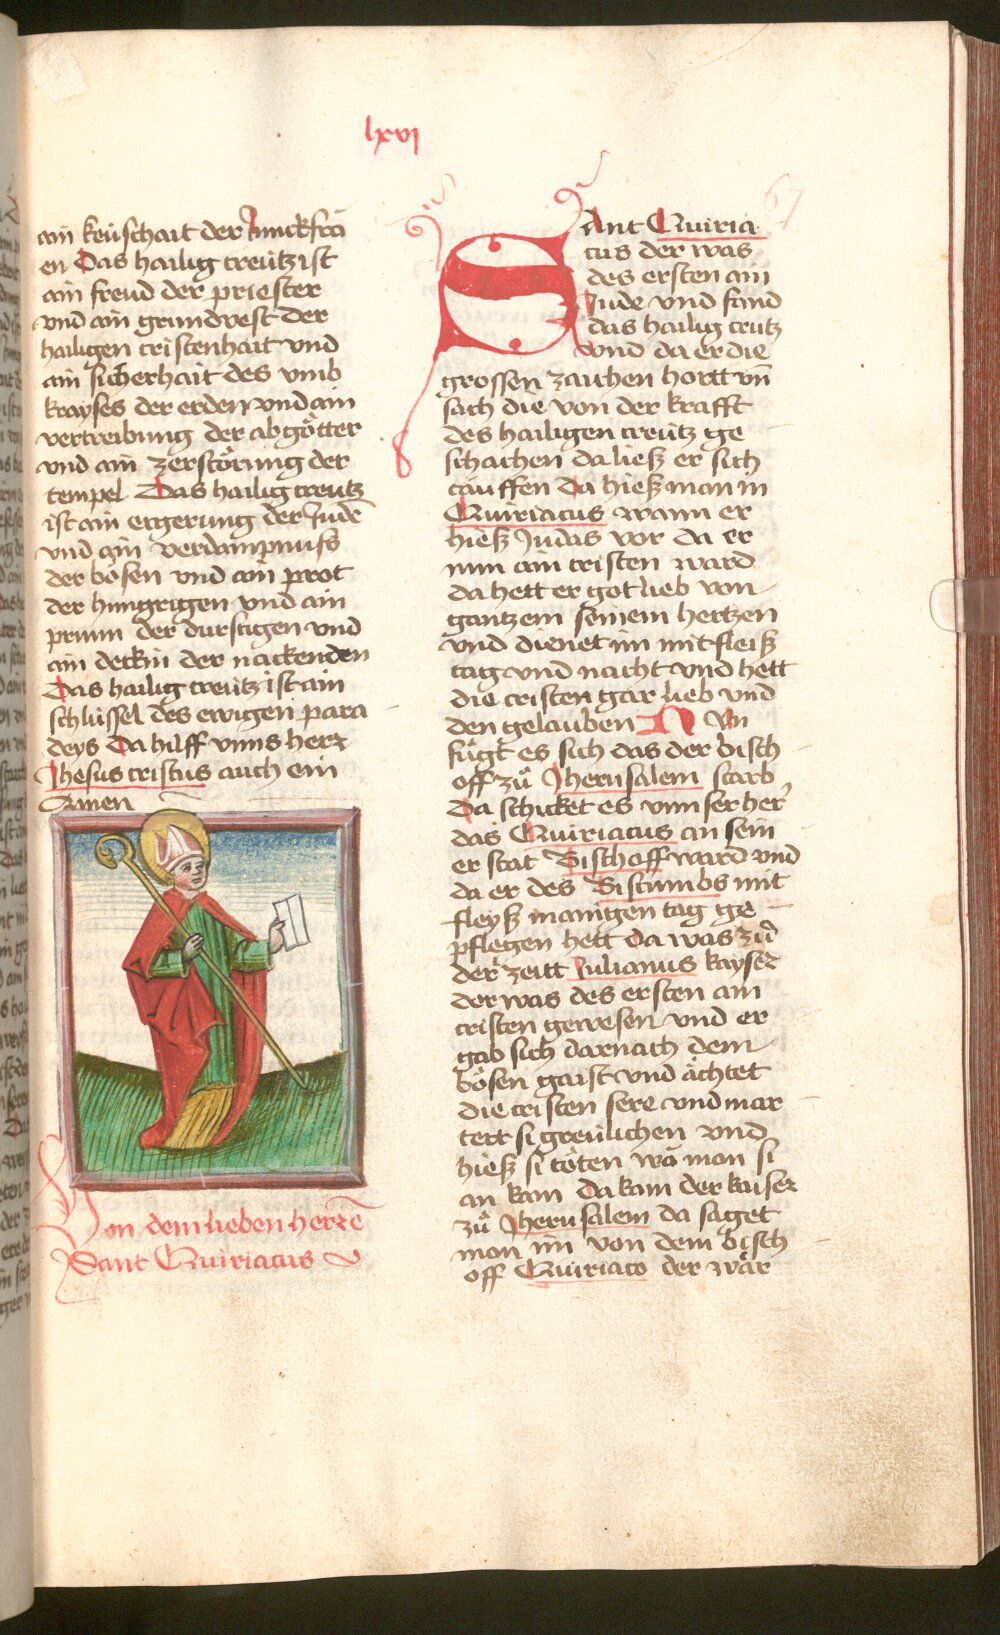 lxvi
67
ain keüschait der Junckfra
en Das hailig creütz ist
ain freud der priester
vnd ain grundvest der
hailigen cristenhait vnd
ain sicherhait des vmb
krayses der erden vnd ain
vertreibung der abgötter
vnd ain zerstörung der
tempel Das hailig creutz
ist ain ergerung der Judē
vnd ain verdampnuß
der bösen vnd ain prot
der hungrigen vnd ain
prunn der durstigen vnd
ain deckin der nackenden
Das hailig creütz ist ain
schlüssel des ewigen para
deys Da hilff vnns herr
Jhesus cristus auch ein
Amen
Von dem lieben herrē
Sant Quiriacus
SAnt Quiria
cus der was
des ersten ain
Jude vnd fand
das hailig crütz
vnd da er die
grossen zaichen hortt vn̄
sach die von der krafft
des hailigen creütz ge
schachen da ließ er sich
tauffen da hieß man in
Quiriacus wann er
hieß Judas vor da er
nun ain cristen ward
da hett er got lieb von
gantzem seinem hertzen
vnd dienet im mit fleiß
tag vnd nacht vnd hett
die cristen gar lieb vnd
den gelauben Nvn
fügt es sich das der bisch
off zů Jherusalem starb
Da schicket es vnnser her
das Quiriacus an sein
er stat Bischoff ward vnd
da er des Bistumbs mit
fleyß manigen tag ge
pflegen hett da was zů
der zeitt Julianus kayser
der was des ersten ain
cristen gewesen vnd er
gab sich darnach dem
bösen gaist vnd ächtet
die cristen sere vnd mar
tert si greulichen vnd
hieß si töten wa man si
an kam Da kam der kaiser
zů Jherusalem da saget
man im von dem bisch
off Quiriaco der wär